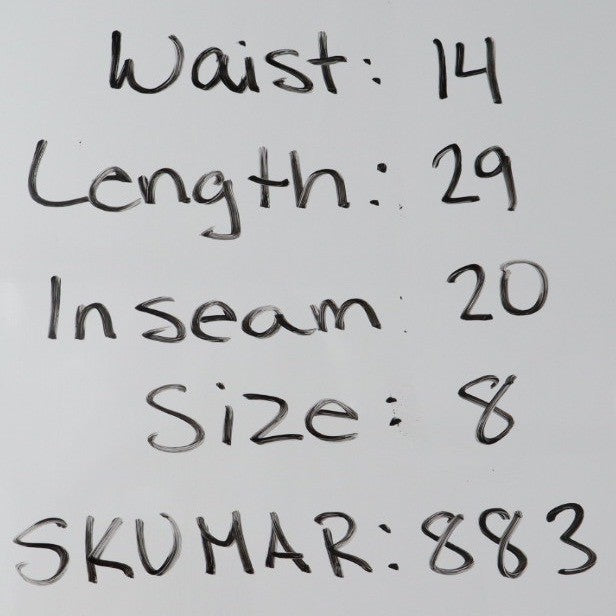 Waist: 14
Length: 29
Inseam: 20
Size: 8
SKUMAR: 883